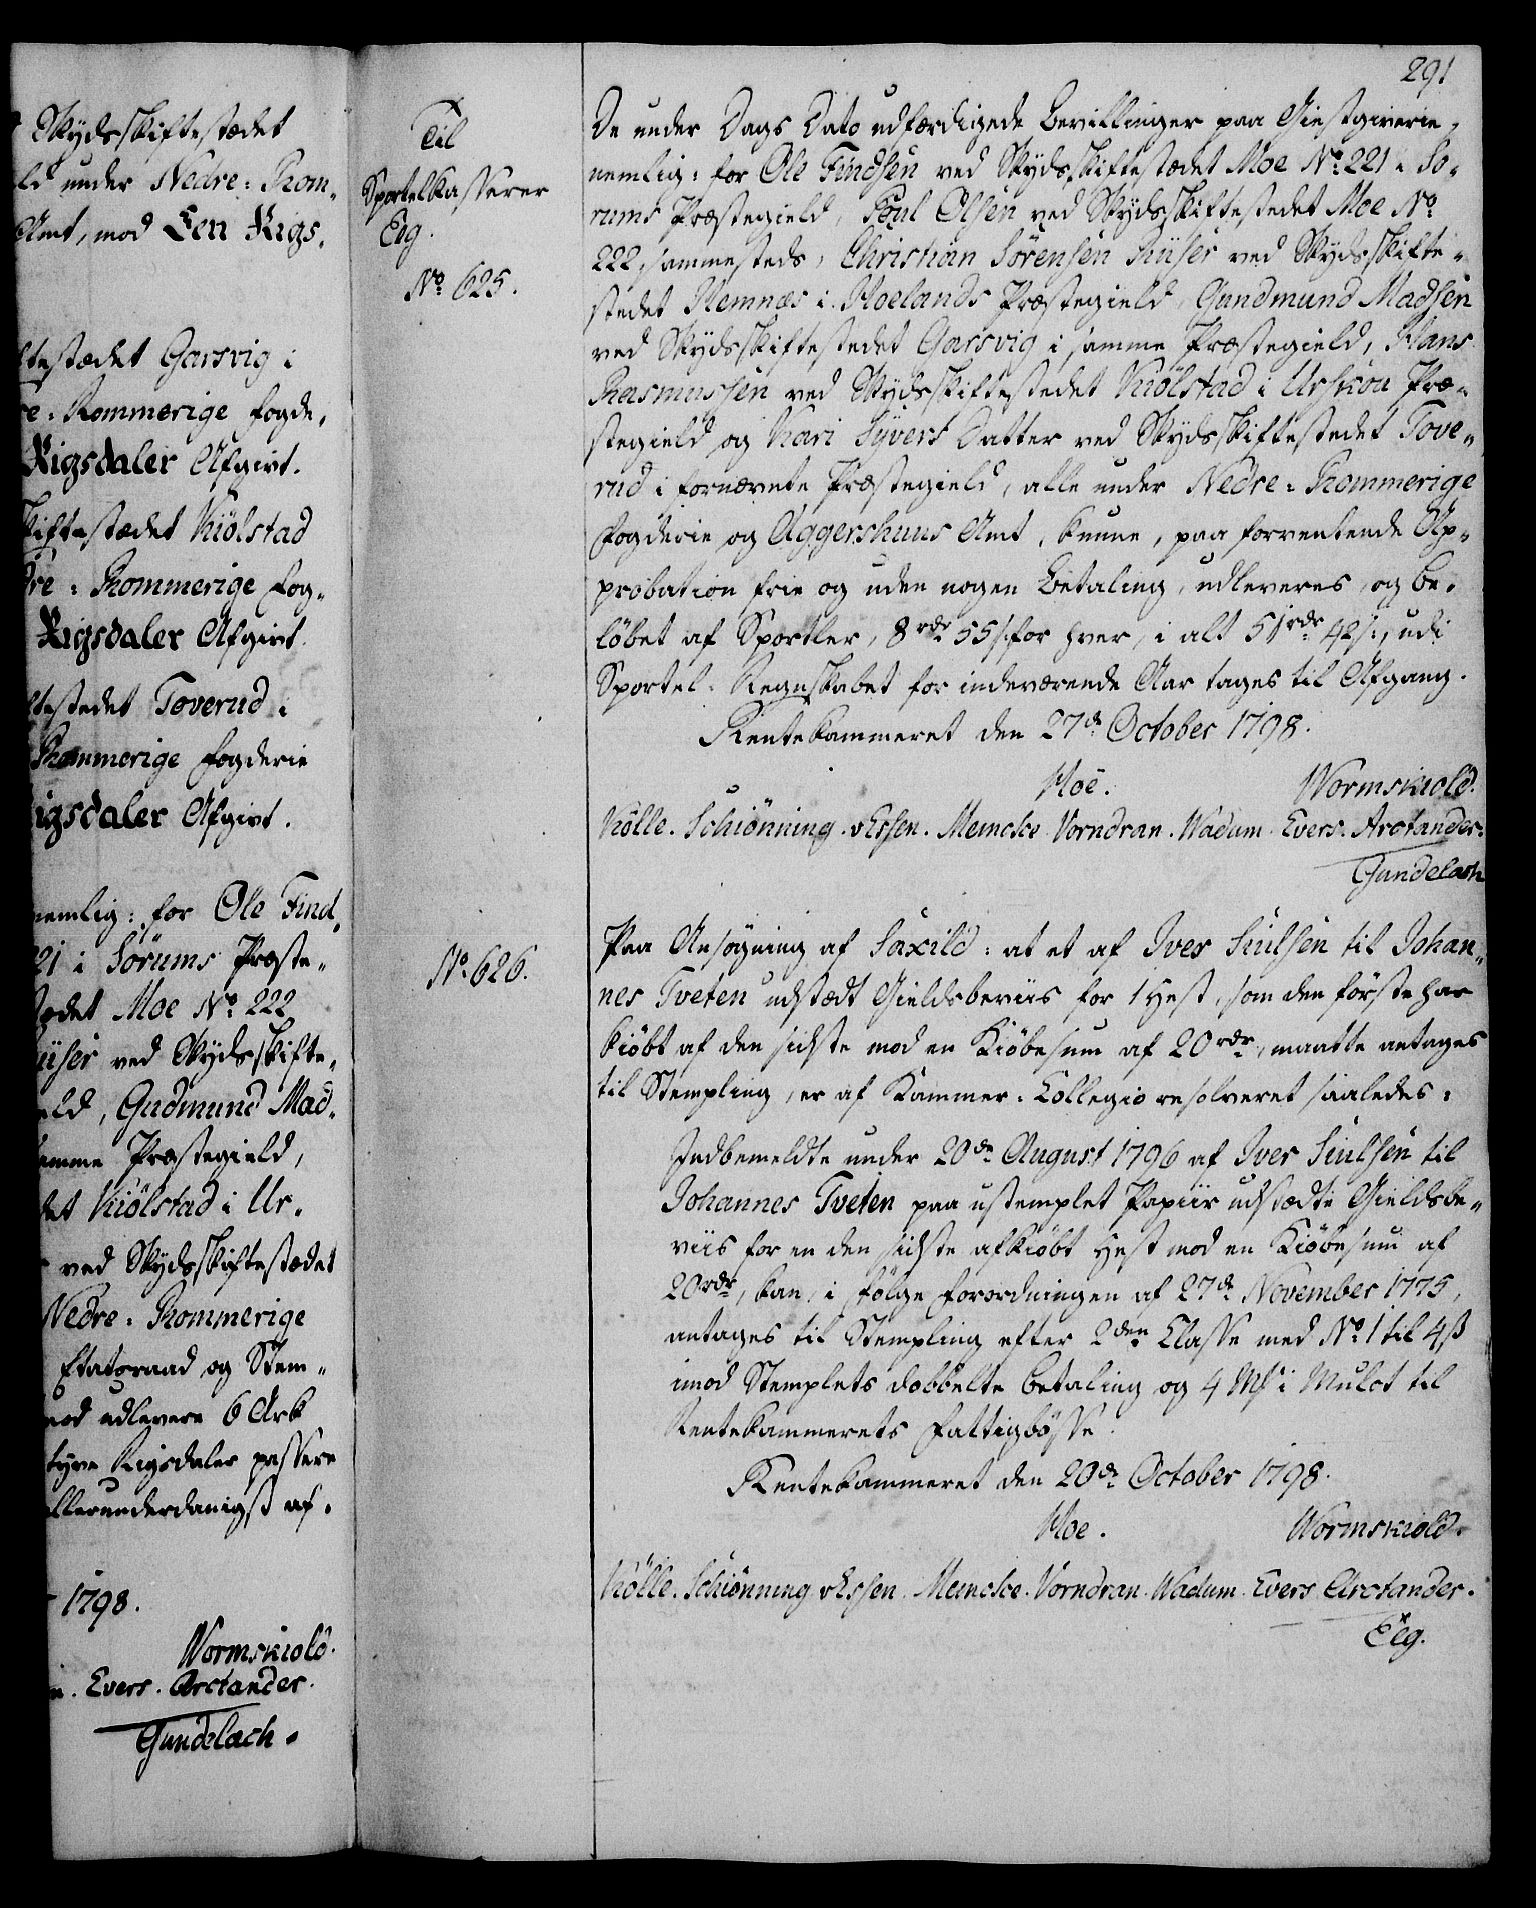 Skydsskiftestædet
ld under Nedre-Rom-
Amt, mod Een Rigs-
ftestædet Garsvig i
re-Rommerige Fogde-
Rigsdaler Afgivt.
skiftestædet Kiölstad
dre-Rommerige Fog-
Rigsdaler Afgivt.
ftestædet Toverud i
Rommerige Fogderie
igsdaler Afgivt.
nemlig: for Ole Find-
221 i Sörums Præste-
stædet Moe No 222
iiser ved Skydsskifte-
eld, Gudmund Mad-
samme Præstegield,
det Kiölstad i Ur-
ved Skydsskiftestædet
Nedre-Rommerige
Etatsraad og Stem-
mod udlevere 6 Ark
tyve Rigsdaler passere
allerunderdanigst af-
1798.
Wormskiold.
n. Evers. Arctander.
Gundelach.
Til
Sportelkasserer
Eeg.
No 625.
No 626.
291
De under Dags Dato udfærdigede Bevillinger paa Giestgiverie-
nemlig: for Ole Findsen ved Skydsskiftestædet Moe No 221 i Sö-
rums Præstegield, Poul Olsen ved Skydsskiftestedet Moe No
222, sammesteds, Christian Sörensen Riiser ved Skydsskifte-
stedet Hemnæs i Hoelands Præstegield, Gundmund Madsen
ved Skydsskiftestedet Garsvig i samme Præstegield, Hans
Rasmussen ved Skydsskiftestedet Kiölstad i Urskou Præ-
stegield og Kari Syvers Datter ved Skydsskiftestedet Tove-
rud i fornævnte Præstegield, alle under Nedre-Rommerige
Fogderie og Aggershuus Amt, kunne, paa forventende Ap-
probation frie og uden nogen Betaling, udleveres, og be-
löbet af Sportler, 8 rdr 55 s. for hver, i alt 51 rdr 42 s., udi
Sportel-Regnskabet for indeværende Aar tages til Afgang.
Rentekammeret den 27de October 1798.
Hoe. Wormskiold.
Kölle. Schiönning. v Essen. Memcke. Vorndran. Wadum. Evers. Arctander.
Gundelach
Paa Ansögning af Saxild: at et af Iver Siulsen til Johan-
nes Tveten udstædt Gieldsbeviis for 1 Hest, som den förste har
kiöbt af den sidste mod en Kiöbesum af 20 rdr, maatte antages
til Stempling, er af Kammer-Collegio resolveret saaledes:
Indbemeldte under 20de August 1796 af Iver Siulsen til
Johannes Tveten paa ustemplet Papiir udstædte Gieldsbe-
viis for en den sidste afkiöbt Hest mod en Kiöbesum af
20 rdr, kan, i fölge Forordningen af 27de November 1775,
antages til Stempling efter 2den Classe med No 1 til 4 ß
imod Stemplets dobbelte Betaling og 4 Mk i Mulct til
Rentekammerets Fattigbösse.
Rentekammeret den 20de October 1798.
Hoe. Wormskiold.
Kölle. Schiönning v Essen. Memcke. Vorndran. Wadum. Evers Arctander.
Eeg.